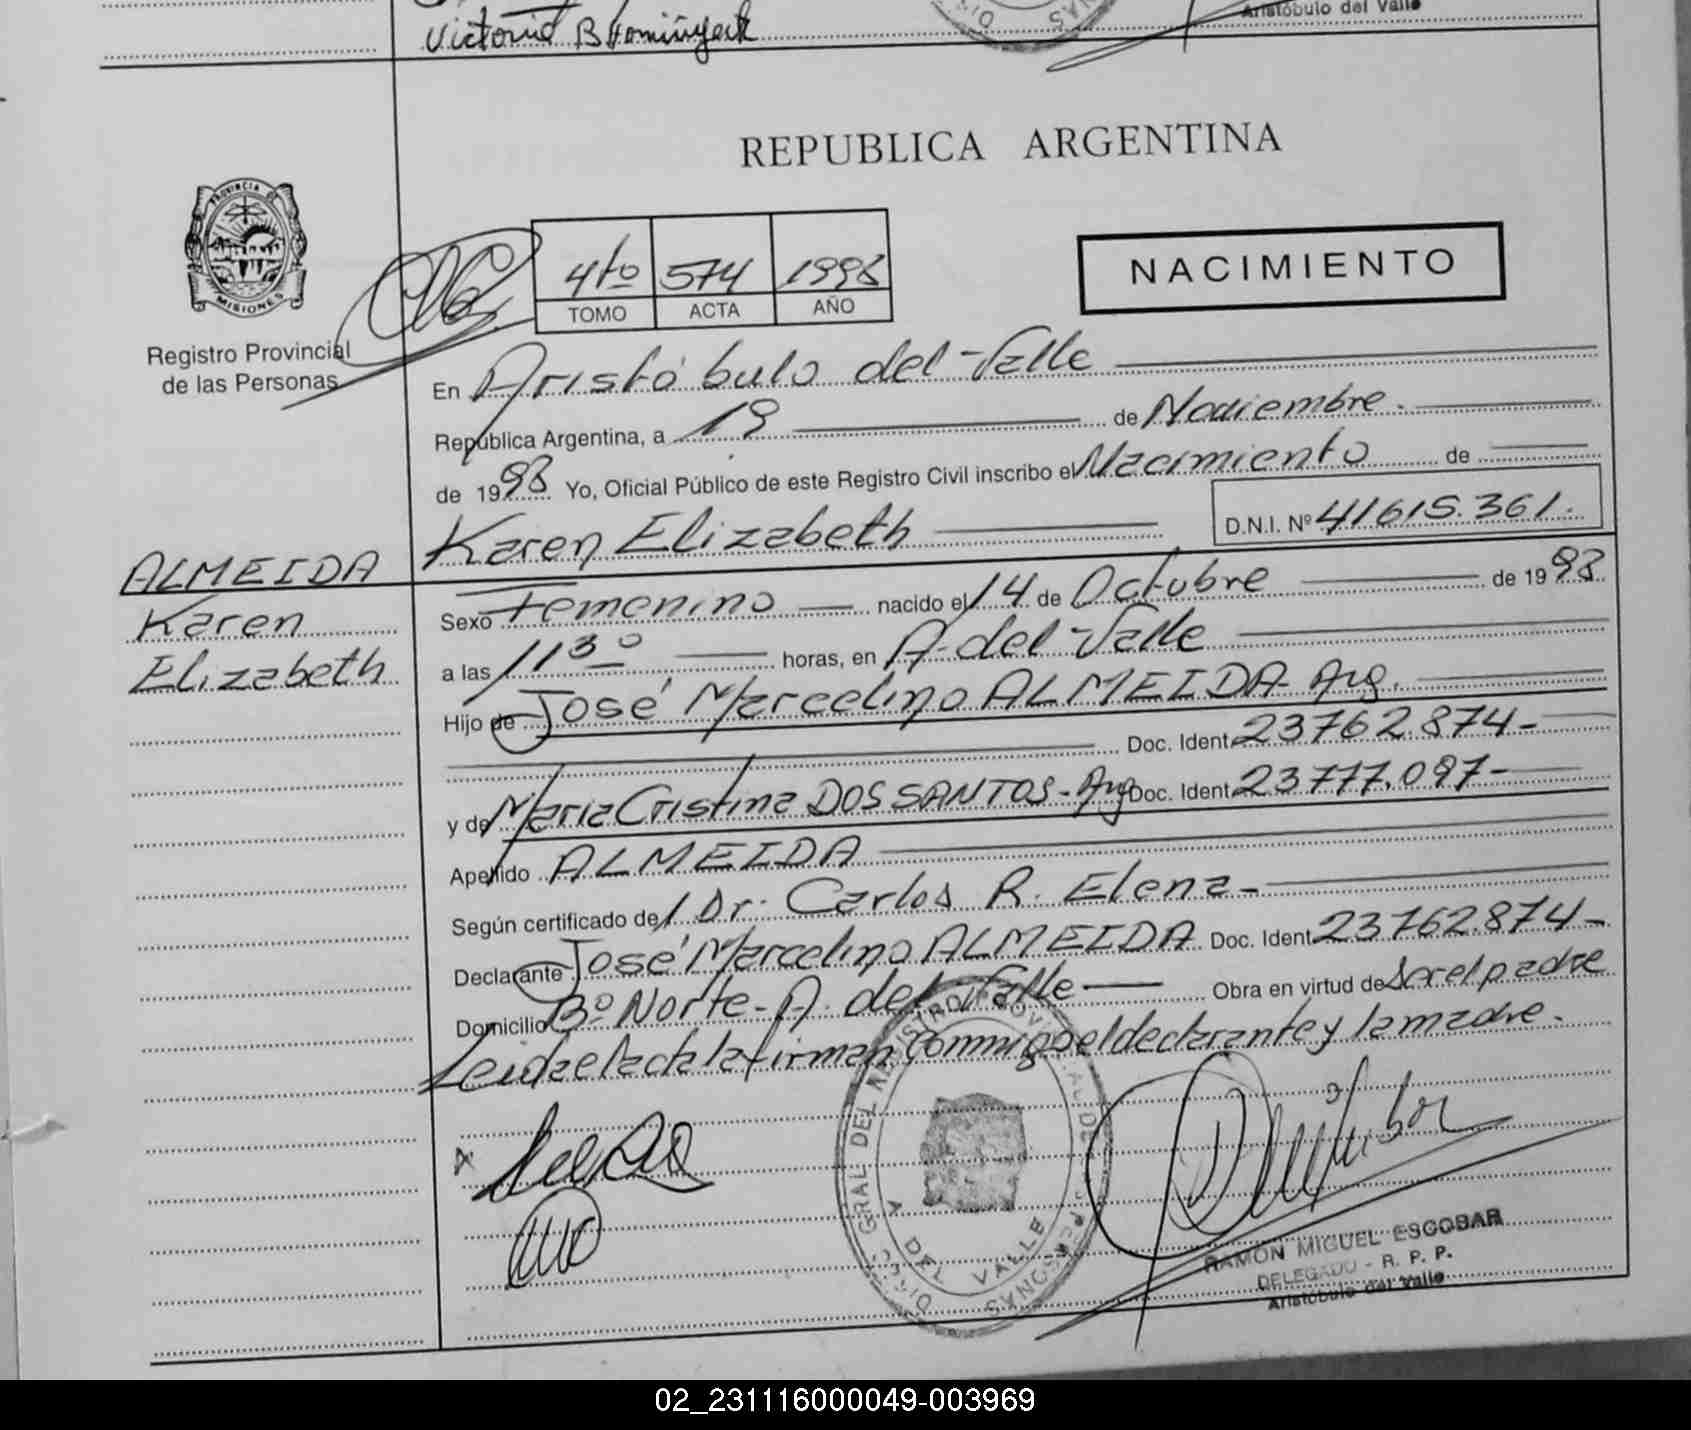 Victoria B
Aristóbulo del Valle
REPUBLICA ARGENTINA
PROVINCIA DE
MISIONES
Registro Provincial
de las Personas
4to 574 1998
TOMO ACTA AÑO
NACIMIENTO
En Aristóbulo del Valle
República Argentina, a 19 de Noviembre.
de 1998 Yo, Oficial Público de este Registro Civil inscribo el Nacimiento de
Karen Elizabeth D.N.I. Nº 41615.361.
ALMEIDA
Karen
Elizabeth
Sexo Femenino nacido el 14 de Octubre de 1998
a las 11 30 horas, en A. del Valle
Hijo de José Marcelino ALMEIDA Arg.
Doc. Ident. 23762.874-
y de María Cristina DOS SANTOS - Arg Doc. Ident. 23777.097-
Apellido ALMEIDA
Según certificado de Dr. Carlos R. Elena-
Declarante José Marcelino ALMEIDA Doc. Ident. 23762.874-
Domicilio Bº Norte - A. del Valle Obra en virtud de ser el padre
Leida el acta la firman conmigo el declarante y la madre.
DIREC. GRAL DEL REGISTRO PROVINCIAL DE LAS PERSONAS
A DEL VALLE
RAMÓN MIGUEL ESCOBAR
DELEGADO - R. P. P.
Aristóbulo del Valle
02_231116000049-003969